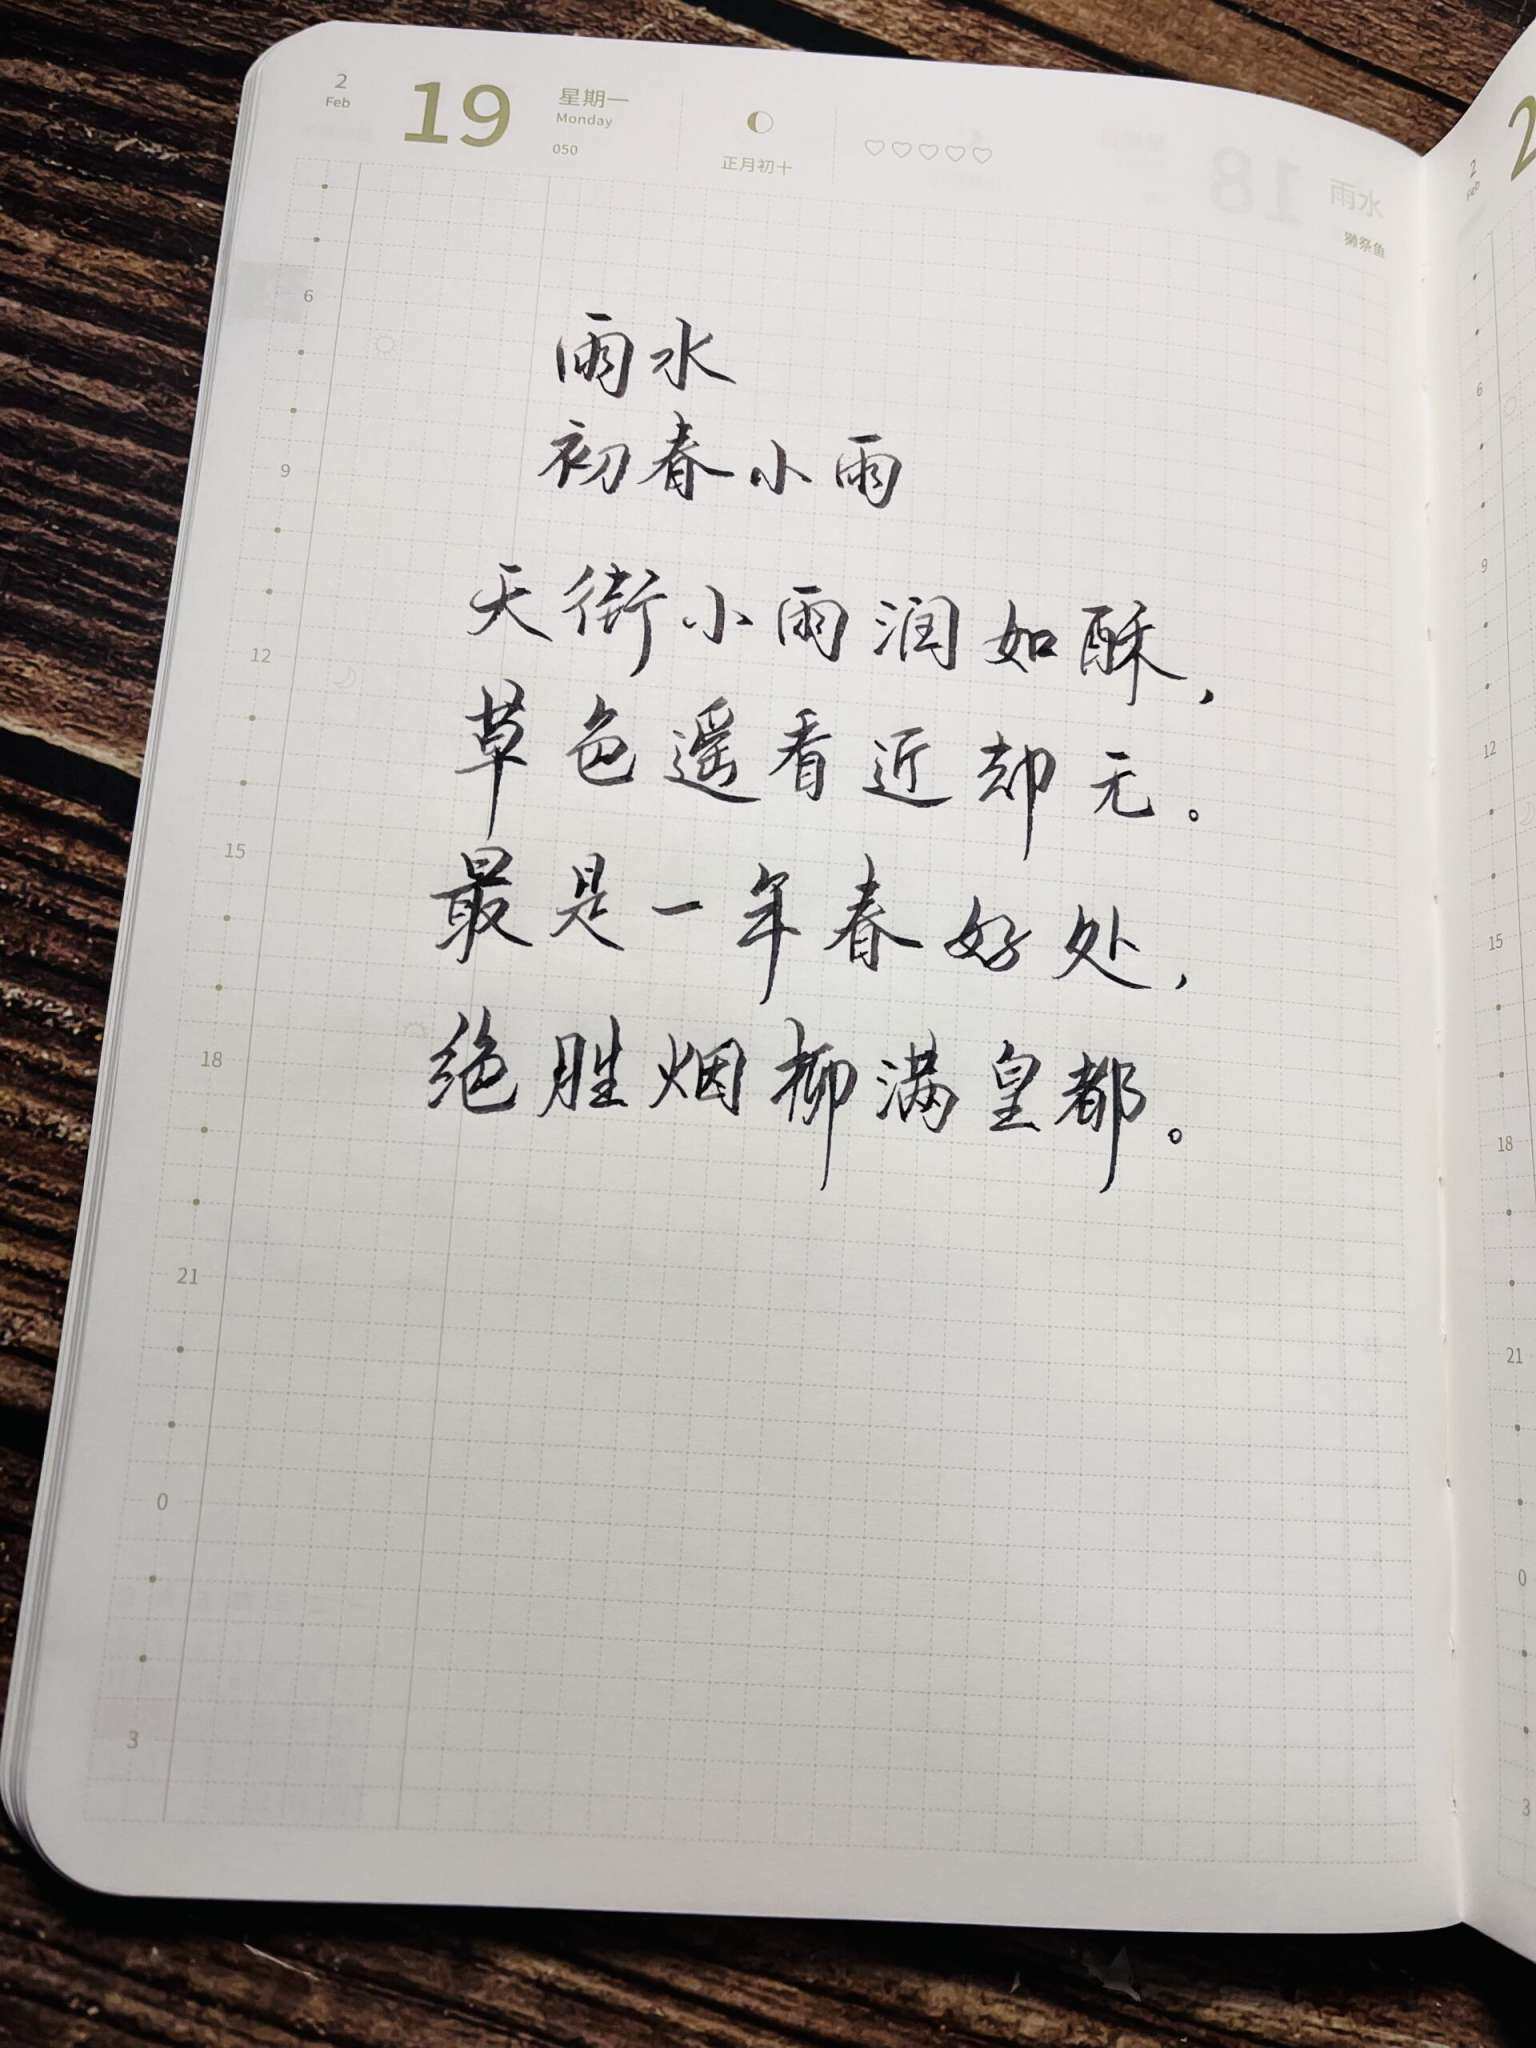 2 19 星期一
Feb Monday
050
正月初十
雨水
獭祭鱼
雨水
初春小雨
天街小雨润如酥，
草色遥看近却无。
最是一年春好处，
绝胜烟柳满皇都。
6
9
12
15
18
21
0
3
2
Feb
2
6
9
12
15
18
21
0
3